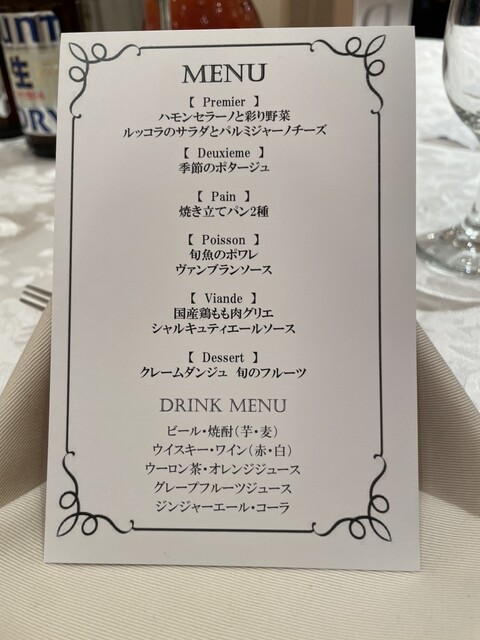 UNT
生
ORY
MENU
【 Premier 】
ハモンセラーノと彩り野菜
ルッコラのサラダとパルミジャーノチーズ
【 Deuxieme 】
季節のポタージュ
【 Pain 】
焼き立てパン2種
【 Poisson 】
旬魚のポワレ
ヴァンブランソース
【 Viande 】
国産鶏もも肉グリエ
シャルキュティエールソース
【 Dessert 】
クレームダンジュ 旬のフルーツ
DRINK MENU
ビール・焼酎(芋・麦)
ウイスキー・ワイン(赤・白)
ウーロン茶・オレンジジュース
グレープフルーツジュース
ジンジャーエール・コーラ